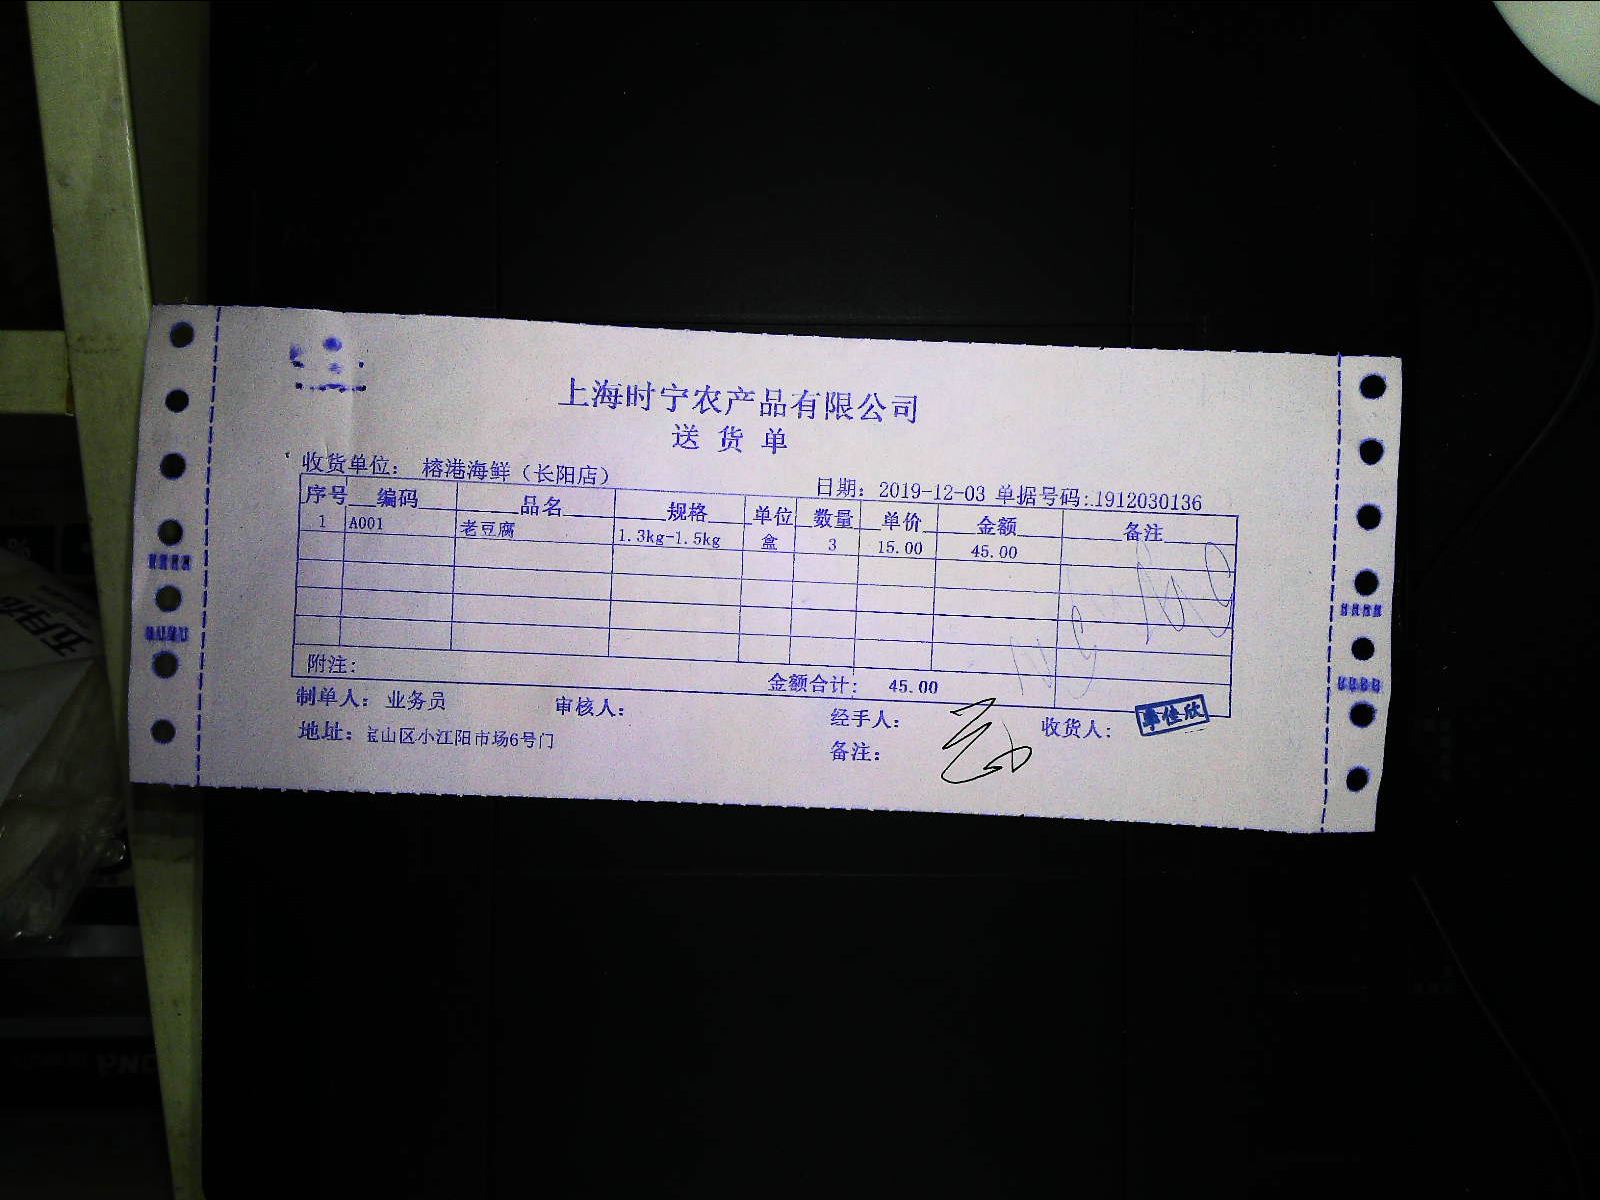 上海时宁农产品有限公司
送货单
收货单位： 榕港海鲜（长阳店） 日期： 2019-12-03 单据号码:.1912030136
序号 编码 品名 规格 单位 数量 单价 金额 备注
1 A001 老豆腐 1.3kg-1.5kg 盒 3 15.00 45.00
附注: 金额合计: 45.00
制单人: 业务员 审核人: 经手人: 收货人:
地址: 宝山区小江阳市场6号门 备注: